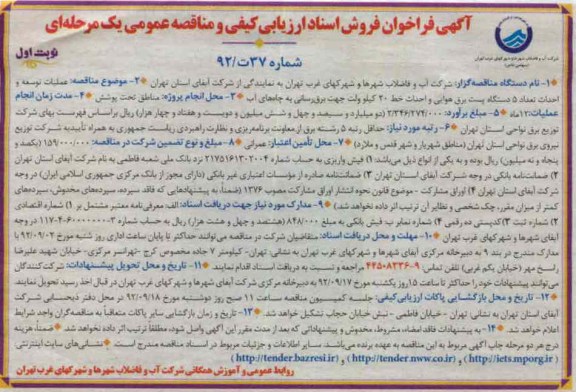 آگهی فراخوان فروش اسناد ارزیابی کیفی و مناقصه عمومی یک مرحله‌ای
نوبت اول
شماره ۳۷ت/۹۲
شرکت آب و فاضلاب شهرها و شهرکهای غرب تهران
۱- نام دستگاه مناقصه‌گزار: شرکت آب و فاضلاب شهرها و شهرکهای غرب تهران به نمایندگی از شرکت آبفای استان تهران ۲- موضوع مناقصه: عملیات توسعه و
احداث تعداد ۵ دستگاه پست برق هوایی و احداث خط ۲۰ کیلو ولت جهت برق‌رسانی به چاه‌های آب ۳- محل انجام پروژه: مناطق تحت پوشش ۴- مدت زمان انجام
عملیات: ۱۲ماه ۵- مبلغ برآورد: ۲/۳۴۶/۲۷۴/۰۰۰ (دو میلیارد و سیصد و چهل و شش میلیون و دویست و هفتاد و چهار هزار) ریال براساس فهرست بهای شرکت
توزیع برق نواحی استان تهران ۶- رتبه مورد نیاز: حداقل رتبه ۵ رشته برق از معاونت برنامه‌ریزی و نظارت راهبردی ریاست جمهوری به همراه تأییدیه شرکت توزیع
نیروی برق نواحی استان تهران (مناطق شهریار و شهر قدس و ملارد) ۷- محل تأمین اعتبار: عمرانی ۸- مبلغ و نوع تضمین شرکت در مناقصه: ۱۵۹/۰۰۰/۰۰۰ (یکصد و
پنجاه و نه میلیون) ریال بوده و به یکی از انواع ذیل می‌باشد: ۱) فیش واریزی به حساب شماره ۲۱۷۵۱۶۱۳۰۲۰۰۴ نزد بانک ملی شعبه فاطمی به نام شرکت آبفای استان تهران
۲) ضمانتنامه بانکی در وجه شرکت آبفای استان تهران ۳) ضمانتنامه صادره از مؤسسات اعتباری غیر بانکی (دارای مجوز از بانک مرکزی جمهوری اسلامی ایران) در وجه
شرکت آبفای استان تهران ۴) اوراق مشارکت - موضوع قانون نحوه انتشار اوراق مشارکت مصوب ۱۳۷۶ (ضمناً، به پیشنهاداتی که فاقد سپرده، سپرده‌های مخدوش، سپرده‌های
کمتر از میزان مقرر، چک شخصی و نظایر آن ترتیب اثر داده نخواهد شد.) ۹- مدارک مورد نیاز جهت دریافت اسناد: الف معرفی‌نامه معتبر مشتمل بر ۱) شماره اقتصادی
۲) شماره ثبت ۳) کدپستی ده رقمی ۴) شماره نمابر ب فیش بانکی به مبلغ ۸۴۸/۰۰۰ (هشتصد و چهل و هشت هزار) ریال به حساب شماره در وجه
آبفای شهرها و شهرکهای غرب تهران ۱۰- مهلت و محل دریافت اسناد: متقاضیان شرکت در مناقصه می‌توانند حداکثر تا پایان ساعت اداری روز شنبه مورخ ۹۲/۰۹/۰۲ با
مدارک مندرج در بند ۹ به دبیرخانه مرکزی آبفای شهرها و شهرکهای غرب تهران به نشانی: تهران- کیلومتر ۷ جاده مخصوص کرج - تهرانسر مرکزی- خیابان شهید علیرضا
راسخ مهر (خیابان یکم غربی) تلفن تماس: ۹-۴۴۵۰۸۲۳۶ مراجعه و نسبت به دریافت اسناد اقدام نمایند. ۱۱- تاریخ و محل تحویل پیشنهادات: شرکت کنندگان
می‌توانند پیشنهادات خود را حداکثر تا ساعت ۱۵ روز یکشنبه مورخ ۹۲/۰۹/۱۷ به دبیرخانه مرکزی شرکت آبفای شهرها و شهرکهای غرب تهران در قبال اخذ رسید تحویل نمایند.
۱۲- تاریخ و محل بازگشایی پاکات ارزیابی کیفی: جلسه کمیسیون مناقصه ساعت ۱۱ صبح روز دوشنبه مورخ ۹۲/۰۹/۱۸ در محل دفتر ذیحسابی شرکت
آبفای استان تهران به نشانی تهران - خیابان فاطمی - نبش خیابان حجاب تشکیل خواهد شد. ۱۳- تاریخ و زمان بازگشایی سایر پاکات متعاقباً به مناقصه‌گران واجد شرایط
اعلام خواهد شد. ۱۴- به پیشنهادات فاقد امضاء، مشروط، مخدوش و پیشنهاداتی که بعد از مدت مقرر این آگهی واصل شود، مطلقاً ترتیب اثر داده نخواهد شد. ضمناً، هزینه
درج هر دو مرحله چاپ آگهی مربوط به این مناقصه به عهده برنده می‌باشد. سایر اطلاعات و جزئیات مربوط در اسناد مناقصه مندرج است. نشانی‌های سایت اینترنتی
(http://iets.mporg.ir) و (http://tender.nww.co.ir) و (http://tender.bazresi.ir)
روابط عمومی و آموزش همگانی شرکت آب و فاضلاب شهرها و شهرکهای غرب تهران